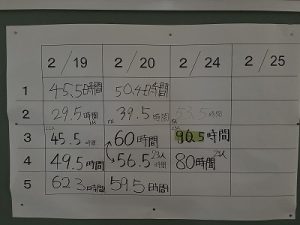 2/19 2/20 2/24 2/25
1 45.5時間 50.4時間
2 29.5時間 39.5時間 53.5時間
3 45.5時間 60時間 90.5時間
4 49.5時間 56.5時間 80時間
5 62.3時間 59.5時間